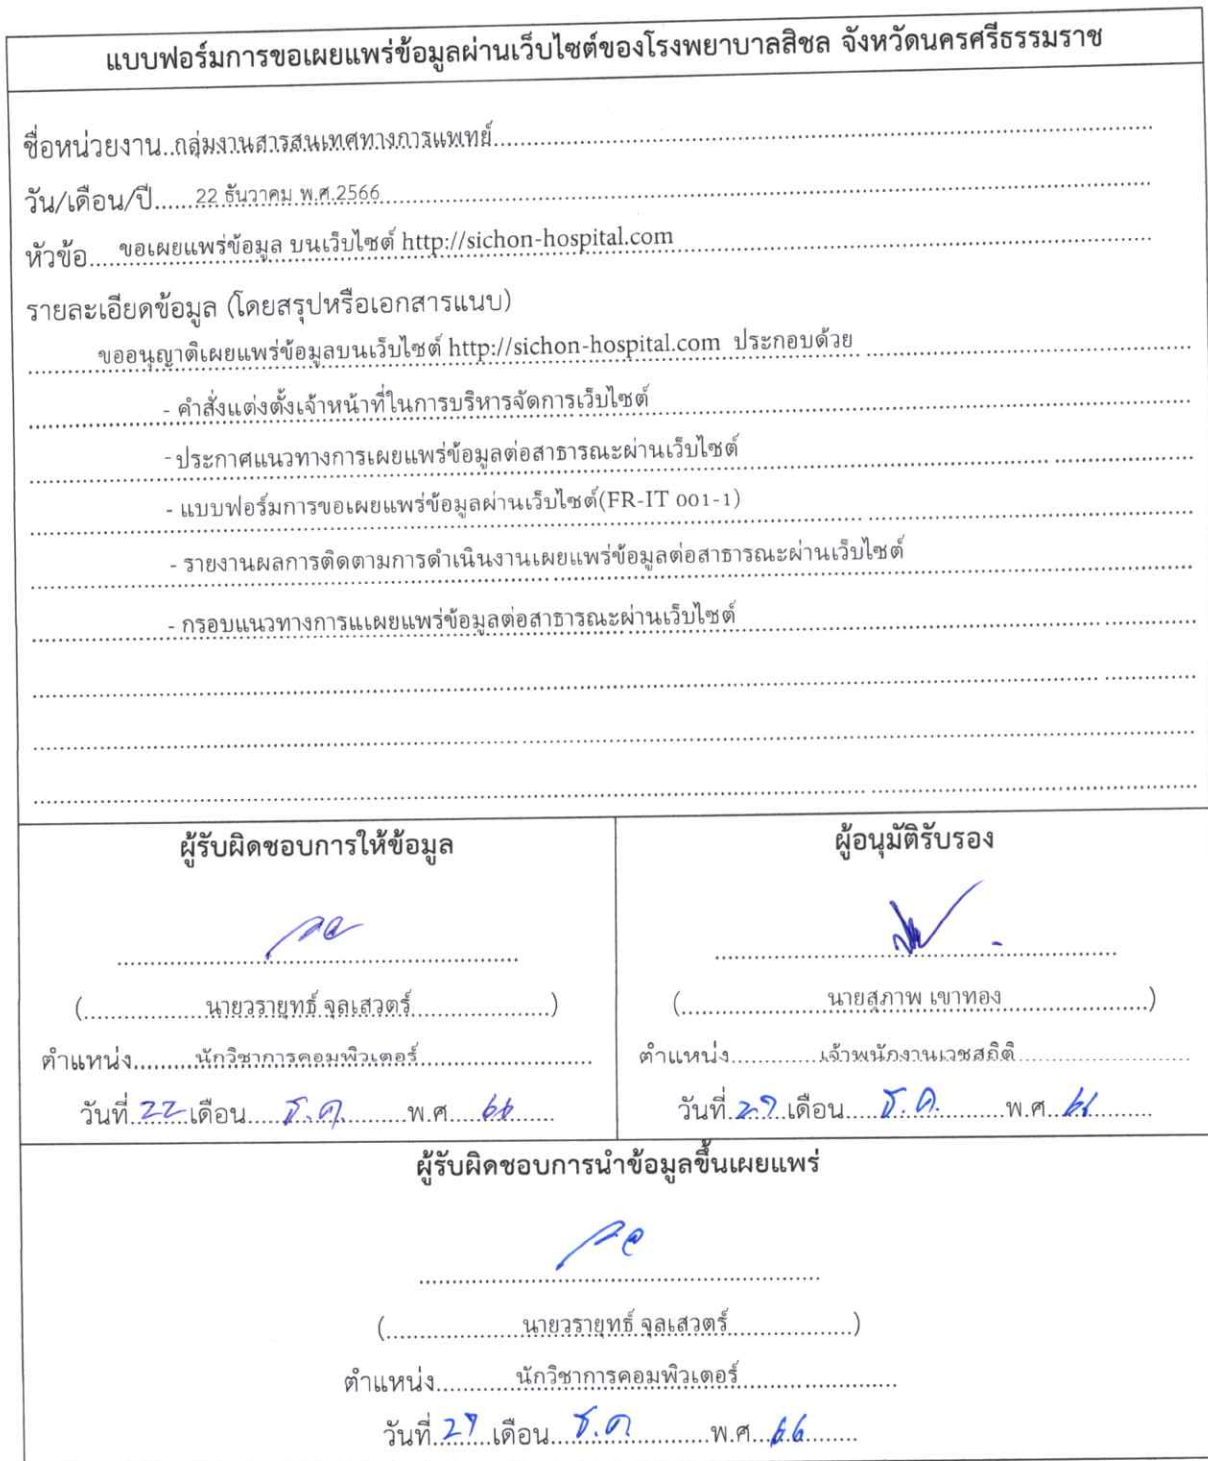 แบบฟอร์มการขอเผยแพร่ข้อมูลผ่านเว็บไซต์ของโรงพยาบาลสิชล จังหวัดนครศรีธรรมราช
ชื่อหน่วยงาน..กลุ่มงานสารสนเทศทางการแพทย์
วัน/เดือน/ปี......22 ธันวาคม พ.ศ.2566
หัวข้อ.....ขอเผยแพร่ข้อมูล บนเว็บไซต์ http://sichon-hospital.com
รายละเอียดข้อมูล (โดยสรุปหรือเอกสารแนบ)
ขออนุญาติเผยแพร่ข้อมูลบนเว็บไซต์ http://sichon-hospital.com ประกอบด้วย
- คำสั่งแต่งตั้งเจ้าหน้าที่ในการบริหารจัดการเว็บไซต์
- ประกาศแนวทางการเผยแพร่ข้อมูลต่อสาธารณะผ่านเว็บไซต์
- แบบฟอร์มการขอเผยแพร่ข้อมูลผ่านเว็บไซต์(FR-IT 001-1)
- รายงานผลการติดตามการดำเนินงานเผยแพร่ข้อมูลต่อสาธารณะผ่านเว็บไซต์
- กรอบแนวทางการแเผยแพร่ข้อมูลต่อสาธารณะผ่านเว็บไซต์
ผู้รับผิดชอบการให้ข้อมูล
(นายวรายุทธ์ จุลเสวตร์)
ตำแหน่ง นักวิชาการคอมพิวเตอร์
วันที่ 22 เดือน ธ.ค. พ.ศ. 66
ผู้อนุมัติรับรอง
(นายสุภาพ เขาทอง)
ตำแหน่ง เจ้าพนักงานเวชสถิติ
วันที่ เดือน ธ.ค. พ.ศ. 66
ผู้รับผิดชอบการนำข้อมูลขึ้นเผยแพร่
(นายวรายุทธ์ จุลเสวตร์)
ตำแหน่ง นักวิชาการคอมพิวเตอร์
วันที่ เดือน ธ.ค พ.ศ. 66